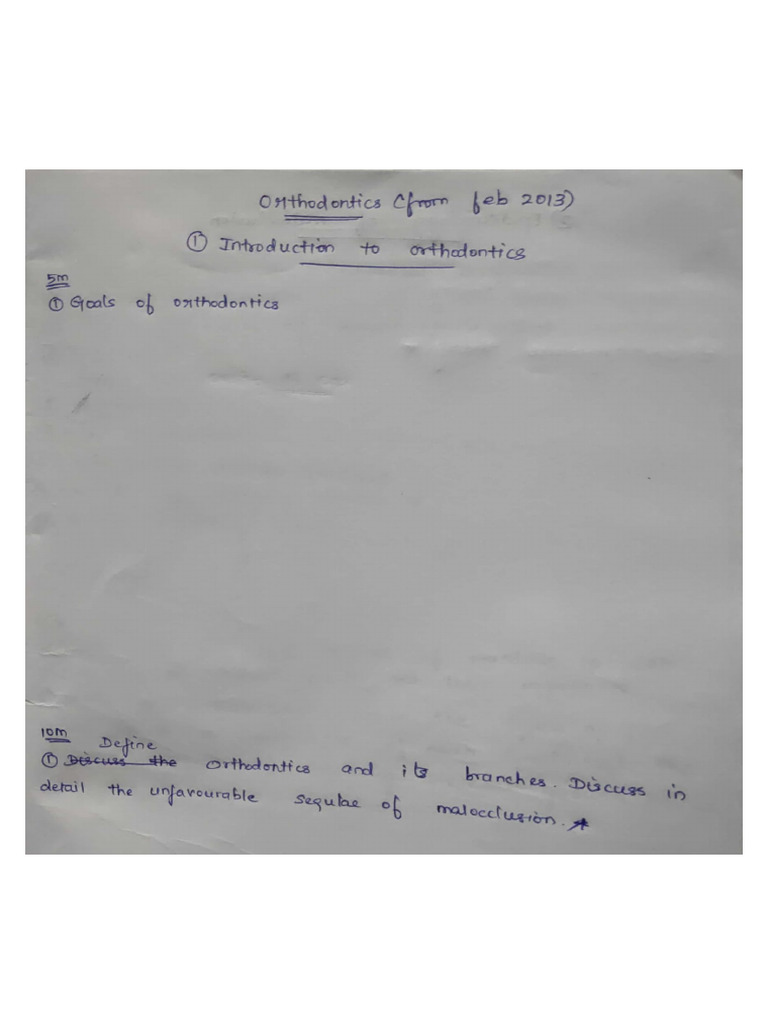 Orthodontics (from feb 2013)
① Introduction to orthodontics
5m
① Goals of orthodontics
10m
Define
① Discuss the orthodontics and its branches. Discuss in
detail the unfavourable sequlae of malocclusion.